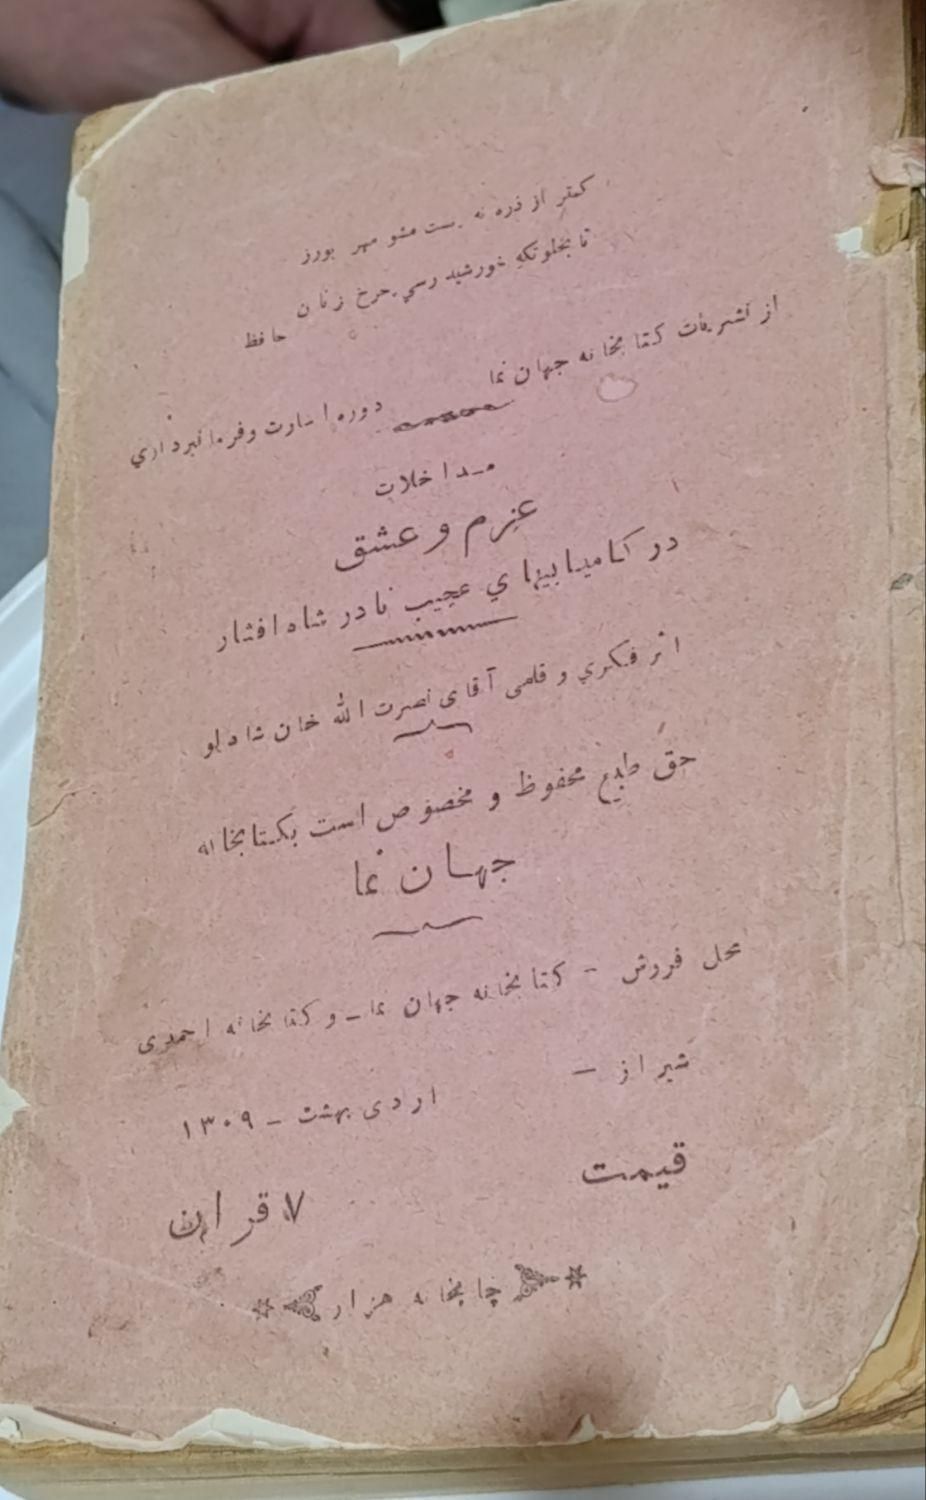 کمتر از ذره نه پست مشو مهر بورز
تا بخلوتگه خورشید رسي چرخ زنان
حافظ
از نشریات کتابخانه جهان نما
دوره اسارت وفرمانبرداري
مداخلات
عزم و عشق
در کامیابیهاي عجیب نادر شاه افشار
اثر فکري و قلمی آقای نصرت الله خان شادلو
حق طبع محفوظ و مخصوص است بکتابخانه
جهان نما
محل فروش - کتابخانه جهان نما - و کتابخانه احمدی
شیراز -
اردی بهشت - ۱۳۰۹
قیمت
۷ قران
چاپخانه هزار